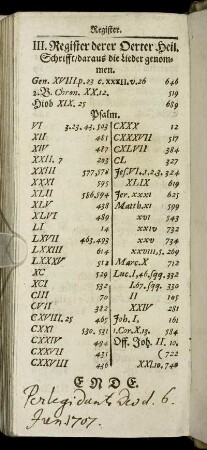 Register.
III. Register derer Oerter Heil.
Schrifft/daraus die Lieder genom-
men.
Gen. XVIII. p. 23 c. XXXII. v. 26 646
2. B. Chron. XX. 12. 519
Hiob XIX. 25 659
Psalm.
VI 3. 23. 43. 503
XII 481
XIV 487
XXII. 7 203
XXIII 577, 578
XXXI 595
XLII 586, 594
XLV 438
XLVI 489
LI 14
LXVII 463, 493
LXXIII 614
LXXXV 512
XC 529
XCI 532
CIII 70
CVII 382
CXVIII. 25 465
CXXI 530. 531
CXXIV 494
CXXVII 435
CXXVIII 436
CXXX 12
CXXXVII 517
CXLVII 384
CL 327
Jes. VI. 1. 2. 3. 324
XLIX 619
Jer. XXXI 625
Matth. XI 599
XVI 543
XXIV 732
XXV 734
XXVIII. 5. 269
Marc. X 712
Luc. I, 46. sqq. 332
I. 67. sqq. 330
II 105
XXIV 281
Joh. I, 161
1. Cor. X. 13. 584
Off. Joh. II. 10.
( 722
XXI. 10, 740
ENDE.
d. 6.
1707.